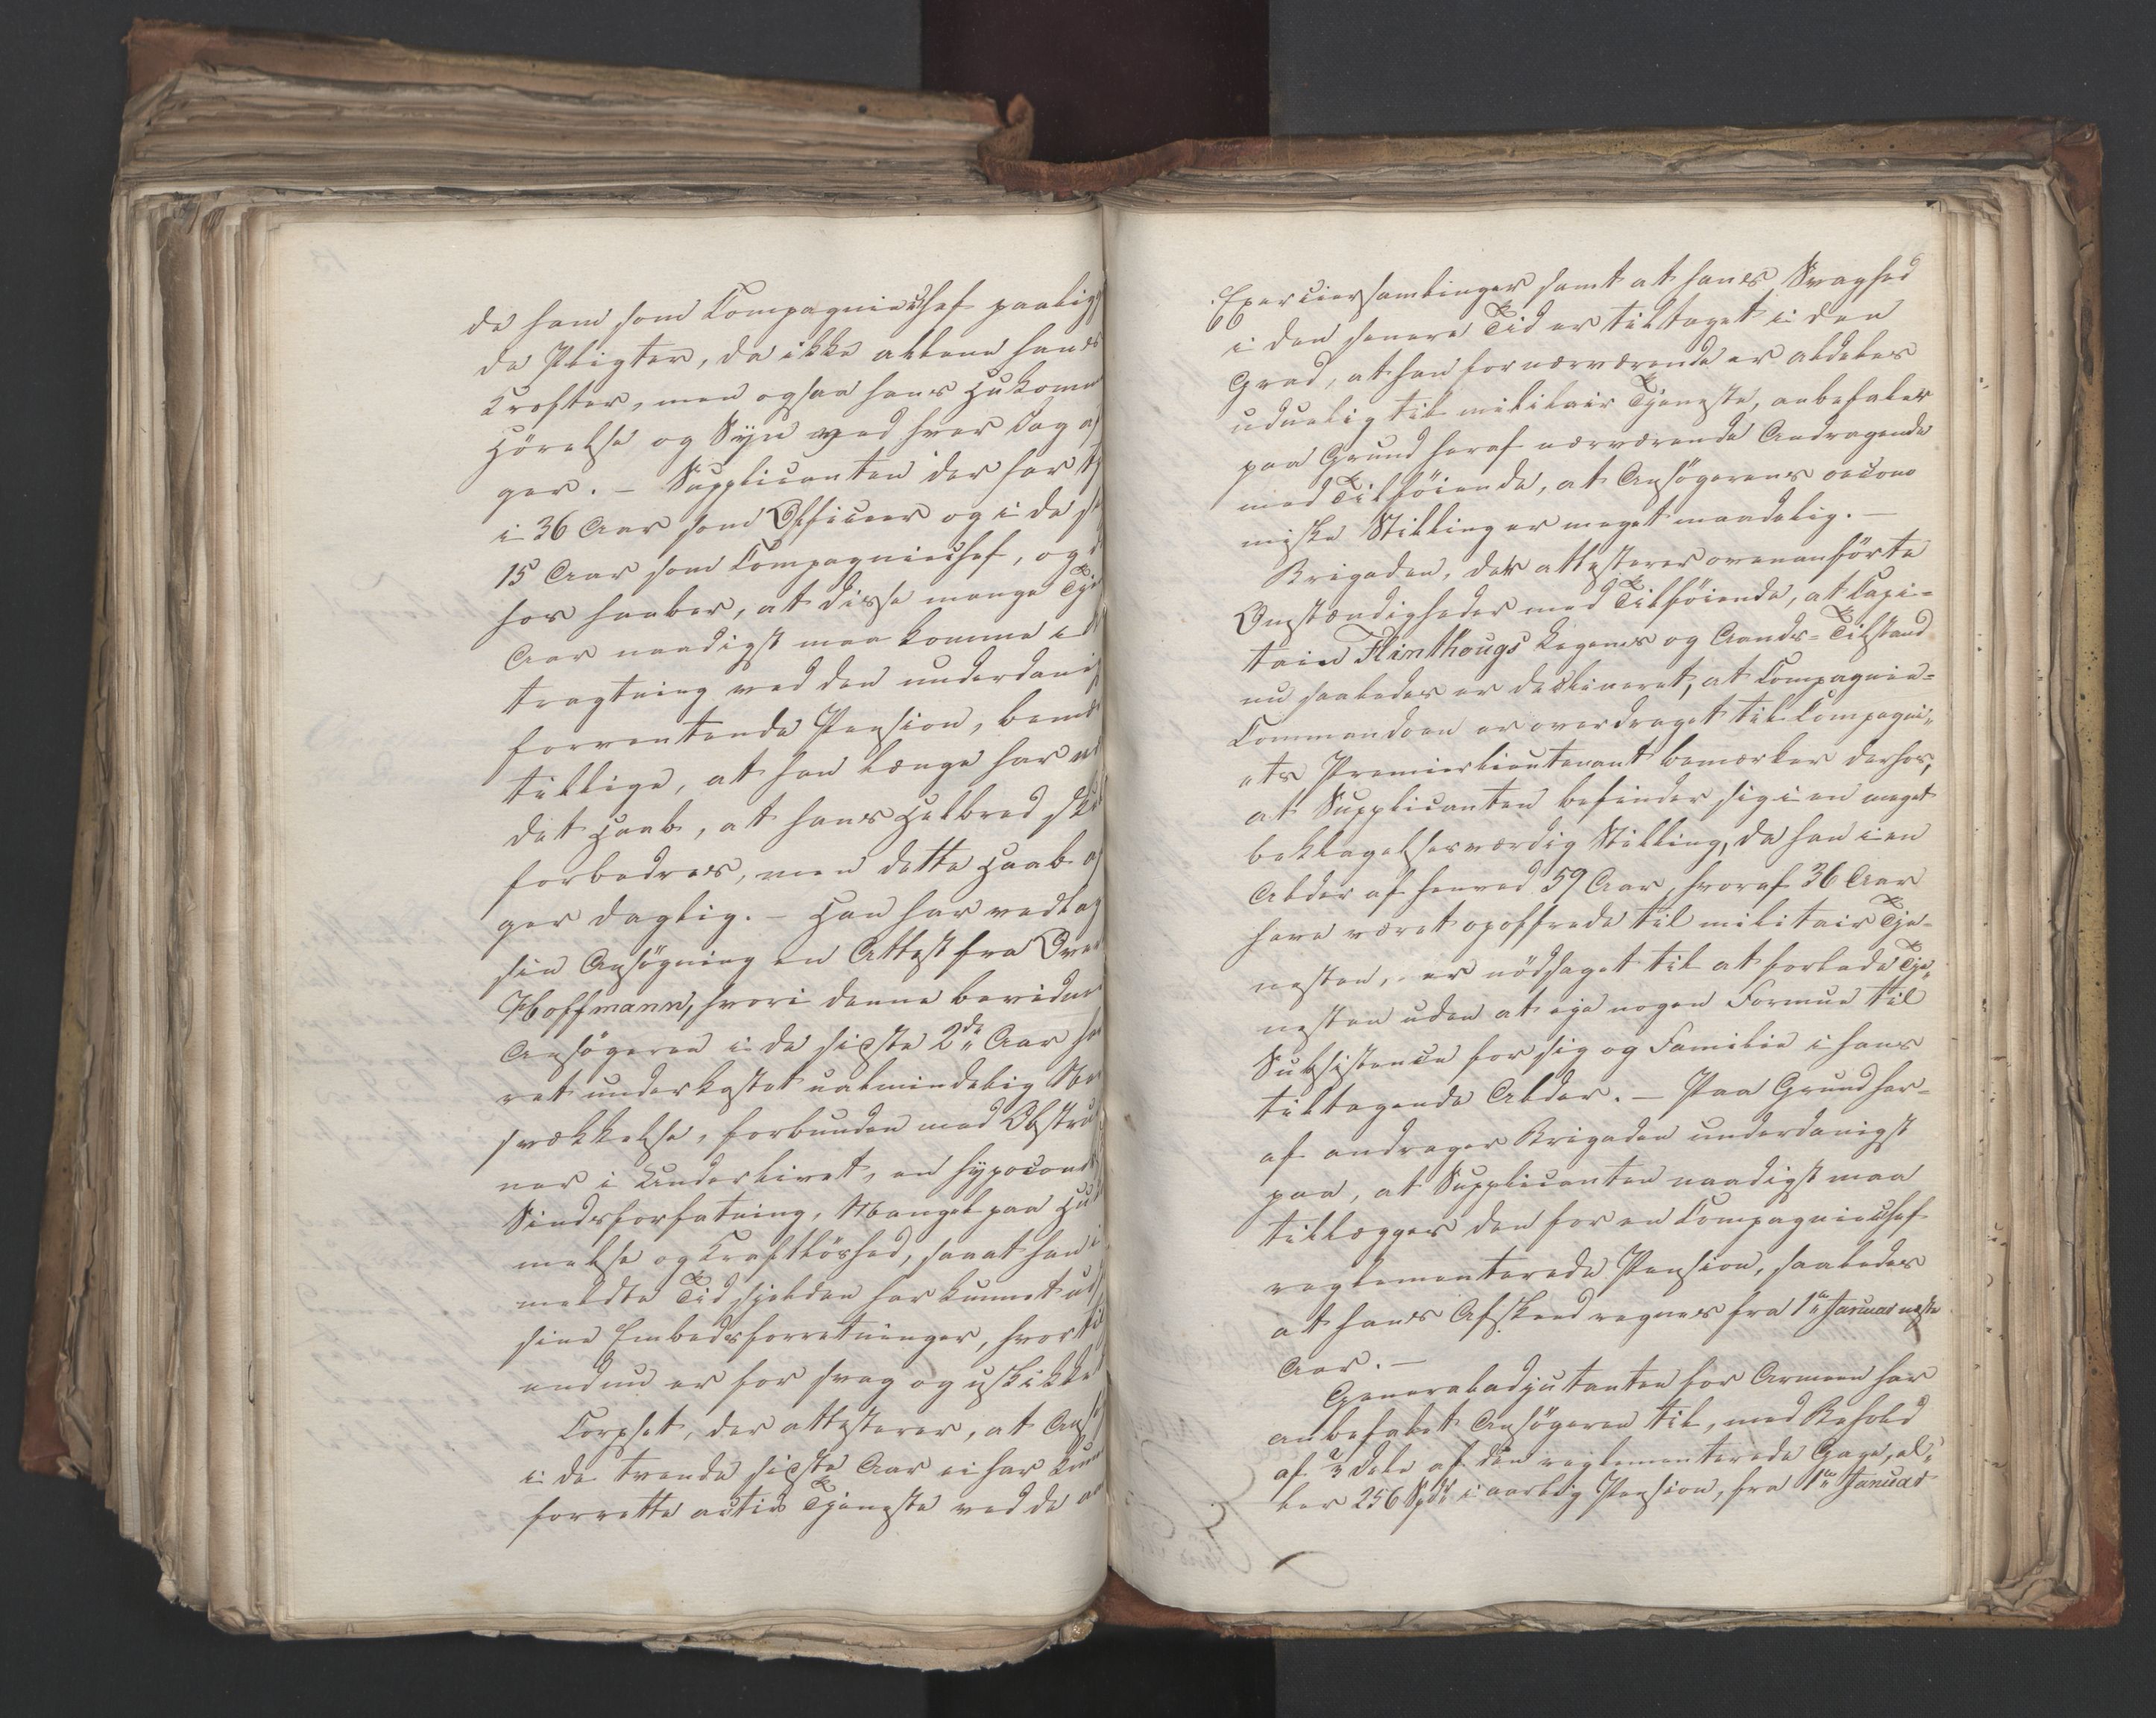 de ham som Compagniechef paalig
de Pligter, da ikke allene hans
Kræfter, men ogsaa hans Hukomm
Hörelse og Syn ved hver Dag af
ger. – Supplicanten der har tj
i 36 Aar som Officeer og i de si
15 Aar som Compagniechef, og d
hos haaber, at disse mange Tje
Aar naadigst maa komme i B
tragtning ved den underdanig
forventende Pension, bemæ
tillige, at han længe har næ
det Haab, at hans Helbred sku
forbedres, men dette Haab af
ger daglig. – Han har vedlag
sin Ansögning en Attest fra Over
Hoffmann, hvori denne bevidner
Ansögeren i de sidste 2de Aar ha
ret underkastet ualmindelig Ner
svækkelse, forbunden med Obstruc
ner i Underlivet, en hypocond
Sindsforfatning, Mangel paa Huk
melse og Kraftlöshed, saaat han i
meldte Tid sjelden har kunnet ud
sine Embedsforretninger, hvortil
endnu er for svag og uskikket
Corpset, der attesterer, at Ansö
i de tvende sidste Aar ei har kun
forrette activ Tjeneste ved de an
Exerceersamlinger samt at hans Svaghed
i den senere Tid er tiltaget i den
Grad, at han for nærværende er aldeles
uduelig til militair Tjeneste, anbefaler
paa Grund heraf nærværende Andragende
med Tilföiende, at Ansögerens oecono
miske Stilling er meget maadelig. –
Brigaden, der attesterer ovenanförte
Omstændigheder med Tilföiende, at Capi-
tain Flinthougs Legems og Aands-Tilstand
nu saaledes er declineret, at Compagnie-
Commandoen er overdraget til Compagni„
„ets Premierlieutenant bemærker derhos,
at Supplicanten befinder sig i en meget
beklagelsesværdig Stilling, da han i en
Alder af henved 59 Aar, hvoraf 36 Aar
have været opoffrede til militair Tje-
nesten, er nödsaget til at forlade Tje„
nesten uden at eje nogen Formue til
Subsistence for sig og Familie i hans
tiltagende Alder. – Paa Grund her-
af andrager Brigaden underdanigst
paa, at Supplicanten naadigst maa
tillægges den for en Compagniechef
reglementerede Pension, saaledes
at hans Afskeed regnes fra 1te Januar næste
Aar. –
Generaladjutanten for Armeen har
anbefalet Ansögeren til, med Behold
af 2/3 Dele af den reglementerede Gage, el„
ler 256 Spd i aarlig Pension, fra 1te Januar